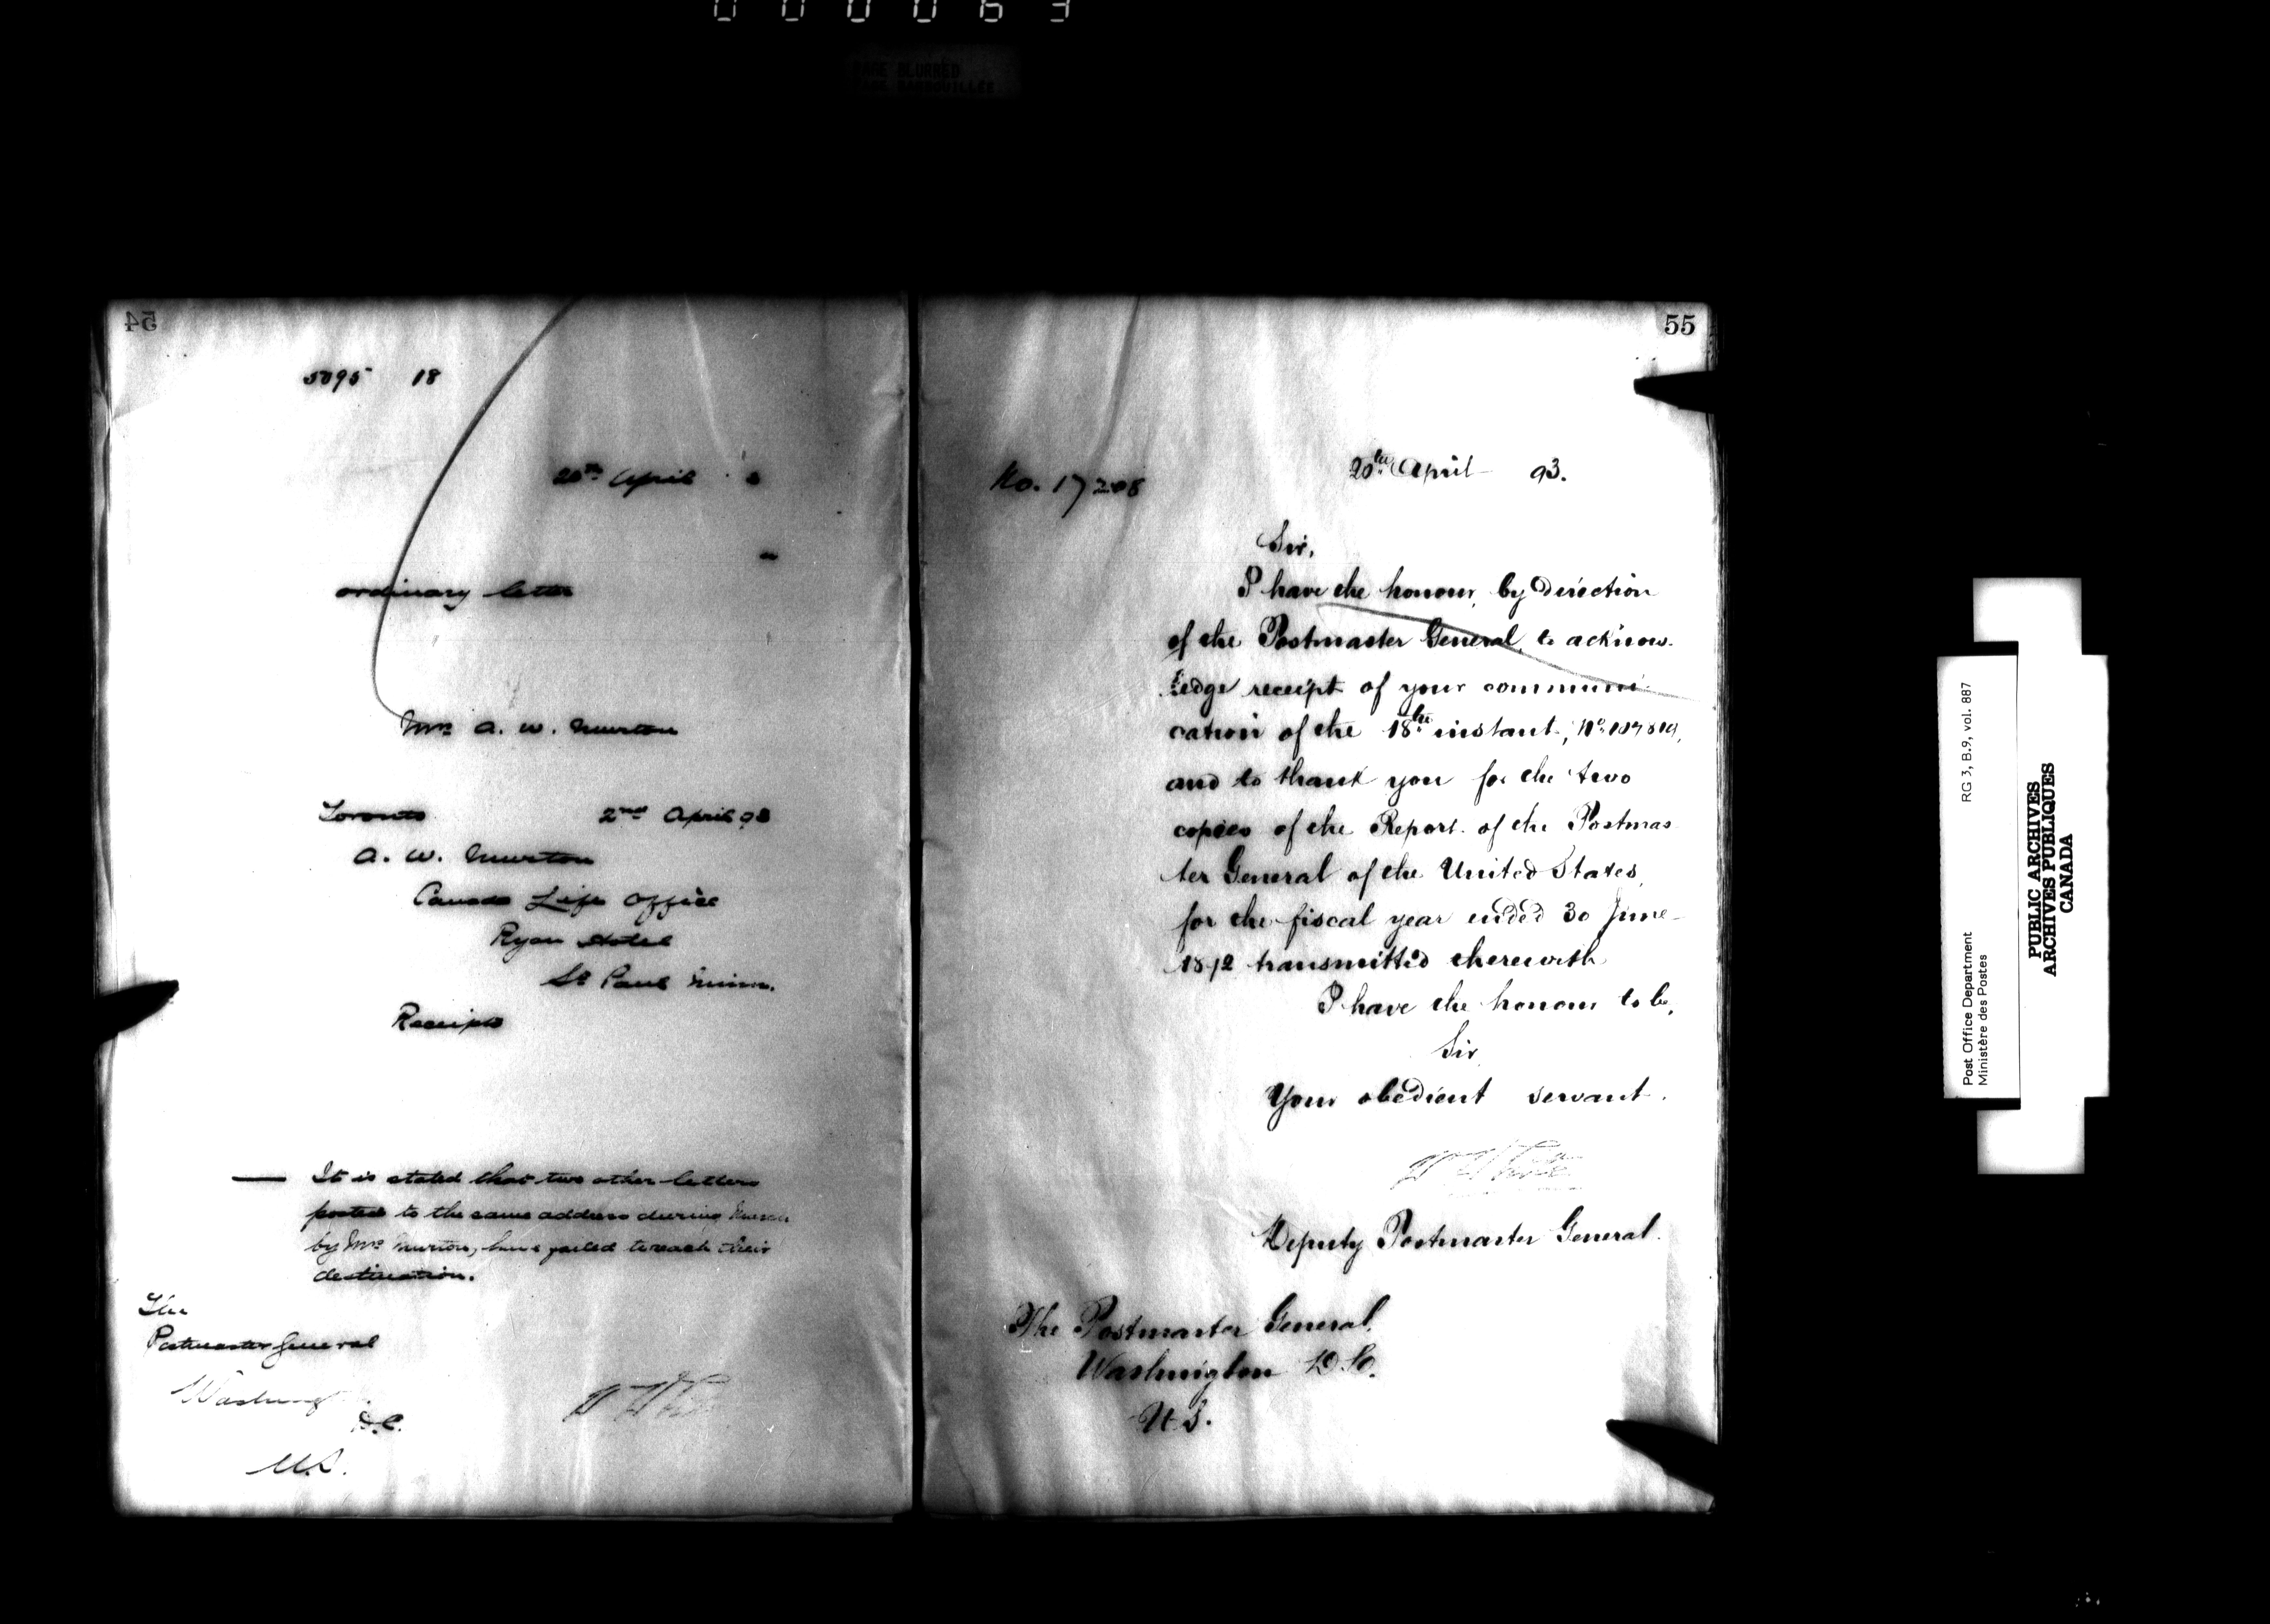 000063
PAGE BLURRED
PAGE BARBOUILLÉE
54
5095 18
20th April 3
ordinary letter
Mrs A. W. Murton
Toronto 2nd April 93
A. W. Murton
Canada Life Office
Ryan Hotel
St Paul Minn.
Receipts
— It is stated that two other letters
posted to the same address during March
by Mrs Murton, have failed to reach their
destination.
The
Postmaster General
Washington
D.C.
U.S.
W White
55
No. 17208
20th April 93.
Sir,
I have the honour, by direction
of the Postmaster General, to acknow-
ledge receipt of your communi-
cation of the 18th instant, No.
and to thank you for the two
copies of the Report of the Postmas
ter General of the United States,
for the fiscal year ended 30 June
1892 transmitted therewith
I have the honour to be,
Sir,
Your obedient servant.
W White
Deputy Postmaster General.
The Postmaster General,
Washington D.C.
U.S.
Post Office Department
Ministère des Postes
RG 3, B.9, vol. 887
PUBLIC ARCHIVES
ARCHIVES PUBLIQUES
CANADA